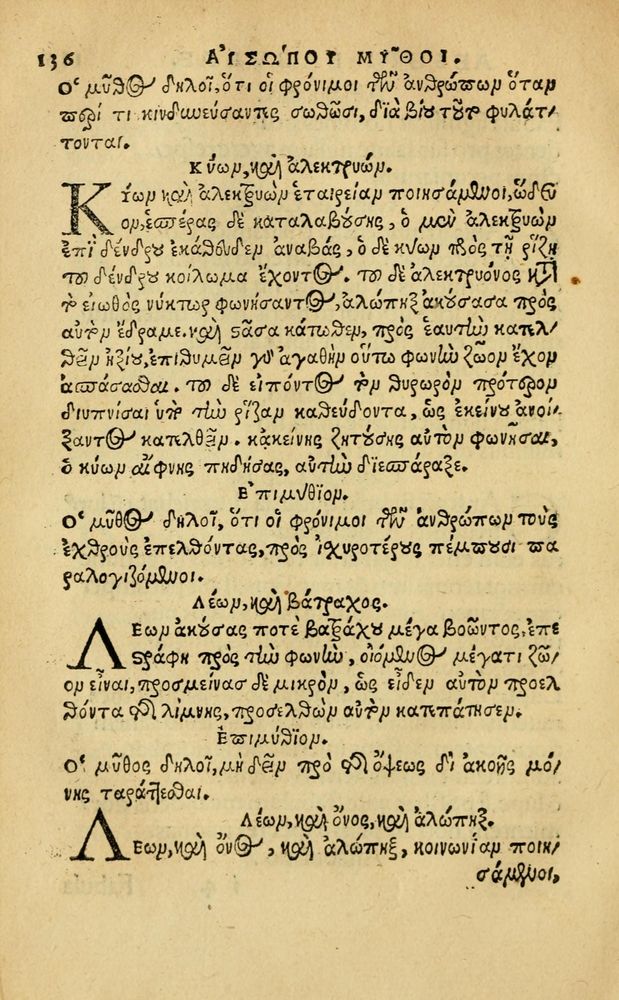 136 ΑΙΣΩΠΟΥ ΜΥΘΟΙ.
Ὁ μῦθος δηλοῖ, ὅτι οἱ φρόνιμοι τῶν ἀνθρώπων ὅταν
περί τι κινδυνεύσαντες σωθῶσι, διὰ βίου τοῦτον φυλάτ/
τονται.
Κύων, καὶ ἀλεκτρυών.
Κύων καὶ ἀλεκτρυὼν ἑταιρείαν ποιησάμενοι, ὥδευ
ον, ἑσπέρας δὲ καταλαβούσης, ὁ μὲν ἀλεκτρυὼν
ἐπὶ δένδρου ἐκάθευδεν ἀναβάς, ὁ δὲ κύων πρὸς τῇ ῥίζῃ
τοῦ δένδρου κοίλωμα ἔχοντος. τοῦ δὲ ἀλεκτρυόνος κατὰ
τὸ εἰωθὸς νύκτωρ φωνήσαντος, ἀλώπηξ ἀκούσασα πρὸς
αὐτὸν ἔδραμε. καὶ στᾶσα κάτωθεν, πρὸς ἑαυτὴν κατελ/
θεῖν ἠξίου, ἐπιθυμεῖν γὰρ ἀγαθὴν οὕτω φωνὴν ζῶον ἔχον
ἀσπάσασθαι. τοῦ δὲ εἰπόντος τὸν θυρωρὸν πρότερον
διυπνίσαι ὑπὸ τὴν ῥίζαν καθεύδοντα, ὡς ἐκείνου ἀνοί/
ξαντος κατελθεῖν. κἀκείνης ζητούσης αὐτὸν φωνῆσαι,
ὁ κύων αἴφνης πηδήσας, αὐτὴν διεσπάραξε.
Ἐπιμύθιον.
Ὁ μῦθος δηλοῖ, ὅτι οἱ φρόνιμοι τῶν ἀνθρώπων τοὺς
ἐχθροὺς ἐπελθόντας, πρὸς ἰσχυροτέρους πέμπουσι πα
ραλογιζόμενοι.
Λέων, καὶ βάτραχος.
Λέων ἀκούσας ποτὲ βατράχου μέγα βοῶντος, ἐπε
στράφη πρὸς τὴν φωνὴν, οἰόμενος μέγα τι ζῶ/
ον εἶναι, προσμείνας δὲ μικρὸν, ὡς εἶδεν αὐτὸν προελ
θόντα τῆς λίμνης, προσελθὼν αὐτὸν κατεπάτησεν.
Ἐπιμύθιον.
Ὁ μῦθος δηλοῖ, μὴ δεῖν πρὸ τῆς ὄψεως δι ἀκοῆς μό/
νης ταράττεσθαι.
Λέων, καὶ ὄνος, καὶ ἀλώπηξ.
Λέων, καὶ ὄνος, καὶ ἀλώπηξ, κοινωνίαν ποιη/
σάμενοι,